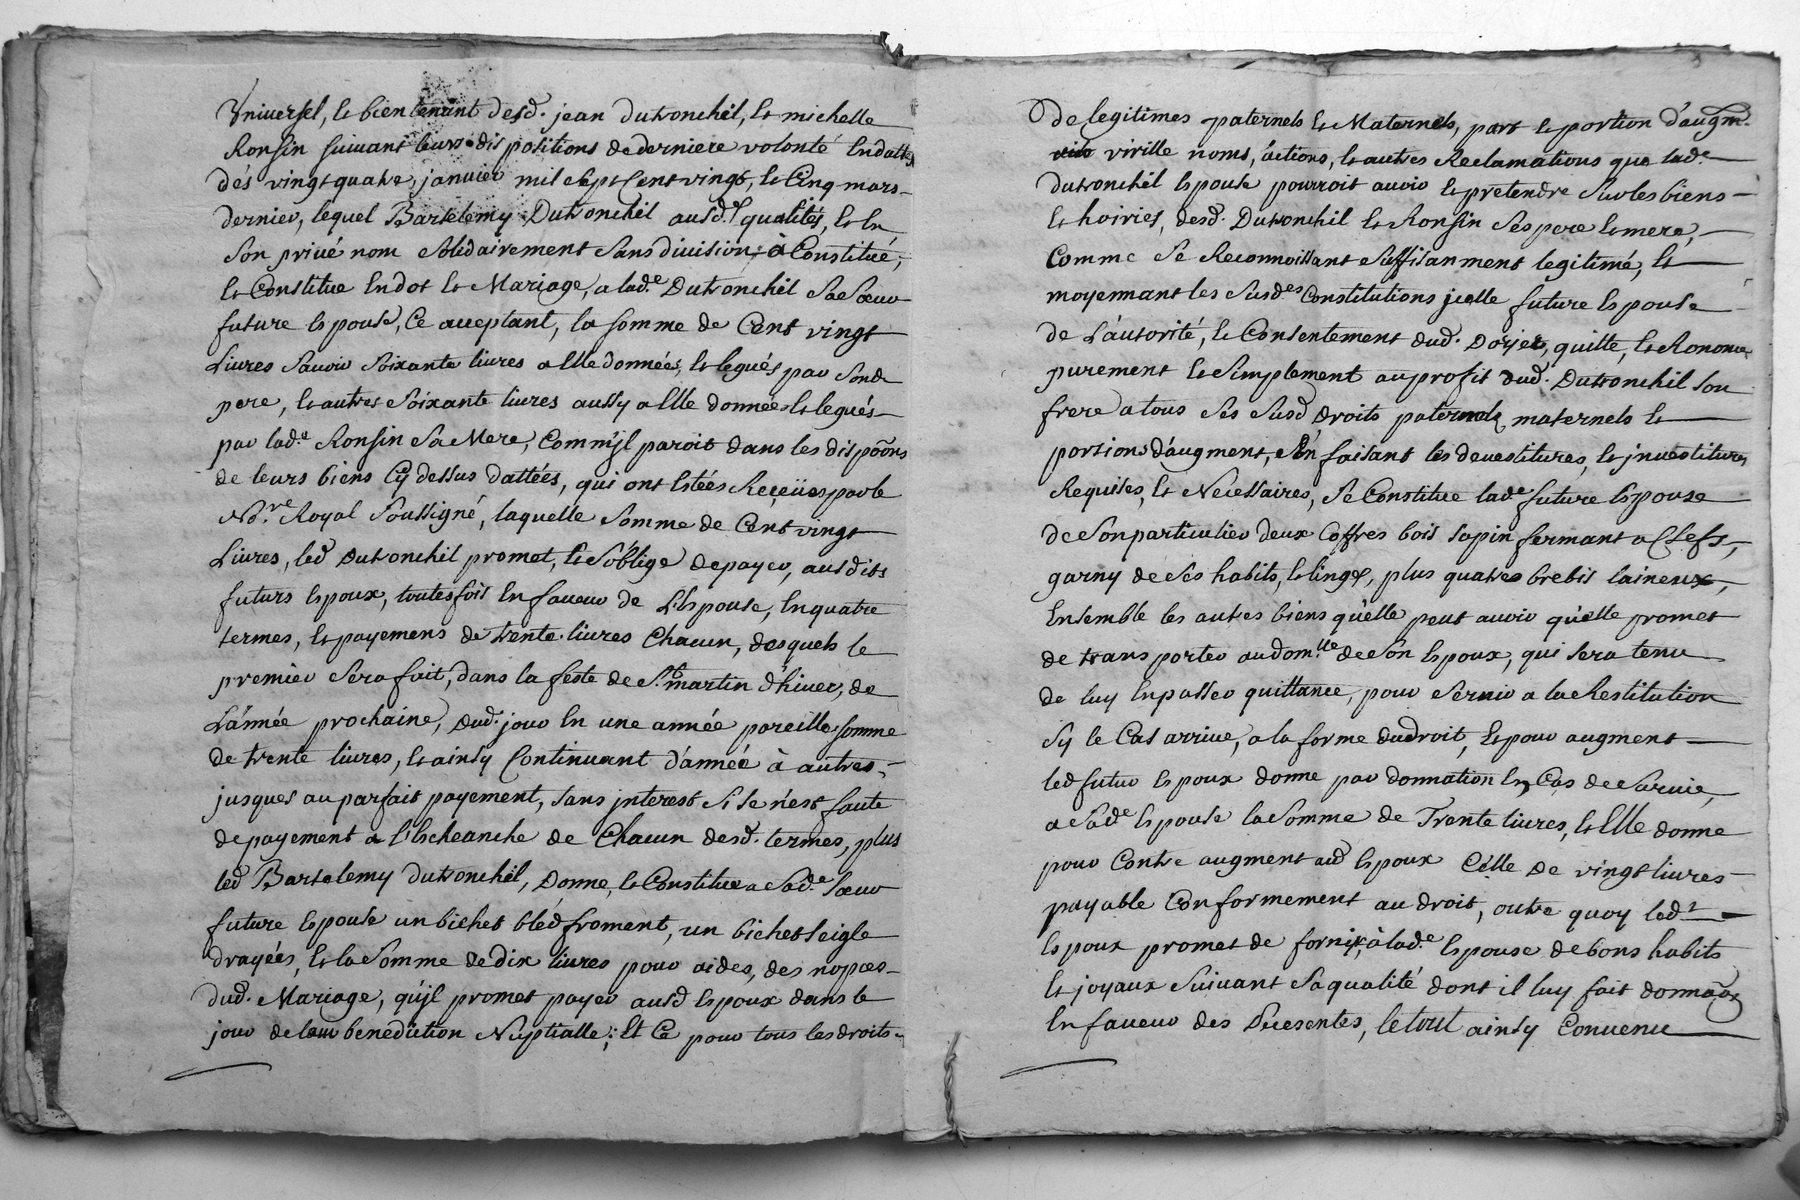 Universel, et bientenant desd. jean dutronchil, et michelle
Ronsin suivant leurs dispositions de derniere volonté En datte
dés vingt quatre, janvier mil sept Cent vingt, et Cinq mars
dernier, lequel Bartelemy Dutronchil ausd. qualités, et En
Son privé nom solidairement Sans division, à Constitué,
et Constitue En dot et Mariage, a lad.e Dutronchil Sa Sœur
future Epouse, Ce acceptant, la somme de Cent vingt
Livres Savoir Soixante livres a Elle données, et legués par Sond.
pere, et autres Soixante livres aussy a Elle données et legués
par lad.e Ronsin Sa Mere, Comm'jl paroit dans les dispõons
de leurs biens Cy dessus dattées, qui ont Estées Reçeües par le
No.re Royal Soussigné, laquelle Somme de Cent vingt
Livres, led Dutronchil promet, et S'oblige de payer, ausdits
futurs Epoux, toutesfois En faveur de L'Epouse, En quatre
termes, et payemens de trente livres Chacun, desquels le
premier Sera fait, dans la feste de St. martin d'hiver, de
L'année prochaine, dud. jour En une année pareille somme
de trente livres, et ainsy Continuant d'année à autres,
jusques au parfait payement, sans jnterest Si Se n'est faute
de payement a l'Escheanche de Chacun desd. termes, plus
led Bartelemy dutronchil, Donne, et Constitue a Sad.e Sœur
future Epouse un bichet bléd froment, un bichet seigle
dragéés, et la Somme de dix livres pour aides, des nopces
dud. Mariage, qu'jl promet payer ausd Epoux dans le
jour de leur benediction Nuptialle; Et Ce pour tous les droits
De legitimes paternels et Maternels, part et portion d'augm.
virille noms, actions, et autres Reclamations que lad.e
dutronchil Epouse pourroit avoir et pretendre Sur les biens
et hoiries, desd. Dutronchil et Ronsin Ses pere et mere,
Comme Se Reconnoissant Suffisanment legitimé, et
moyennant les Susd.es Constitutions jcelle future Epouse
de L'autorité, et Consentement dud. Dorjet, quitte, et Renonce
purement et Simplement au profit dud. Dutronchil Son
frere a tous Ses Susd Droits paternels, maternels et
portions d'augment, En faisant les devestitures, et jnvestitures
Requises, et Necessaires, Se Constitue lad.e future Epouse
de Son particulier deux Coffres bois sapin fermant a Clefs,
garny de Ses habits, et linges, plus quatres brebis laineux,
Ensemble les autres biens qu'elle peut avoir qu'elle promet
de transporter au dom.lle de Son Epoux, qui sera tenu
de luy En passer quittance, pour Servir a la Restitution
Sy le Cas arrive, a la forme du droit, Et pour augment
led futur Epoux donne par donnation En Cas de Survie,
a Sad.e Epouse la Somme de Trente livres, et Elle donne
pour Contre augment aud Epoux Celle de vingt livres
payable Conformement au droit, outre quoy led.t
Epoux promet de fornir, à lad.e Epouse de bons habits
et joyaux Suivant Sa qualité dont il luy fait donnãon
En faveur des Presentes, le tout ainsy Convenu